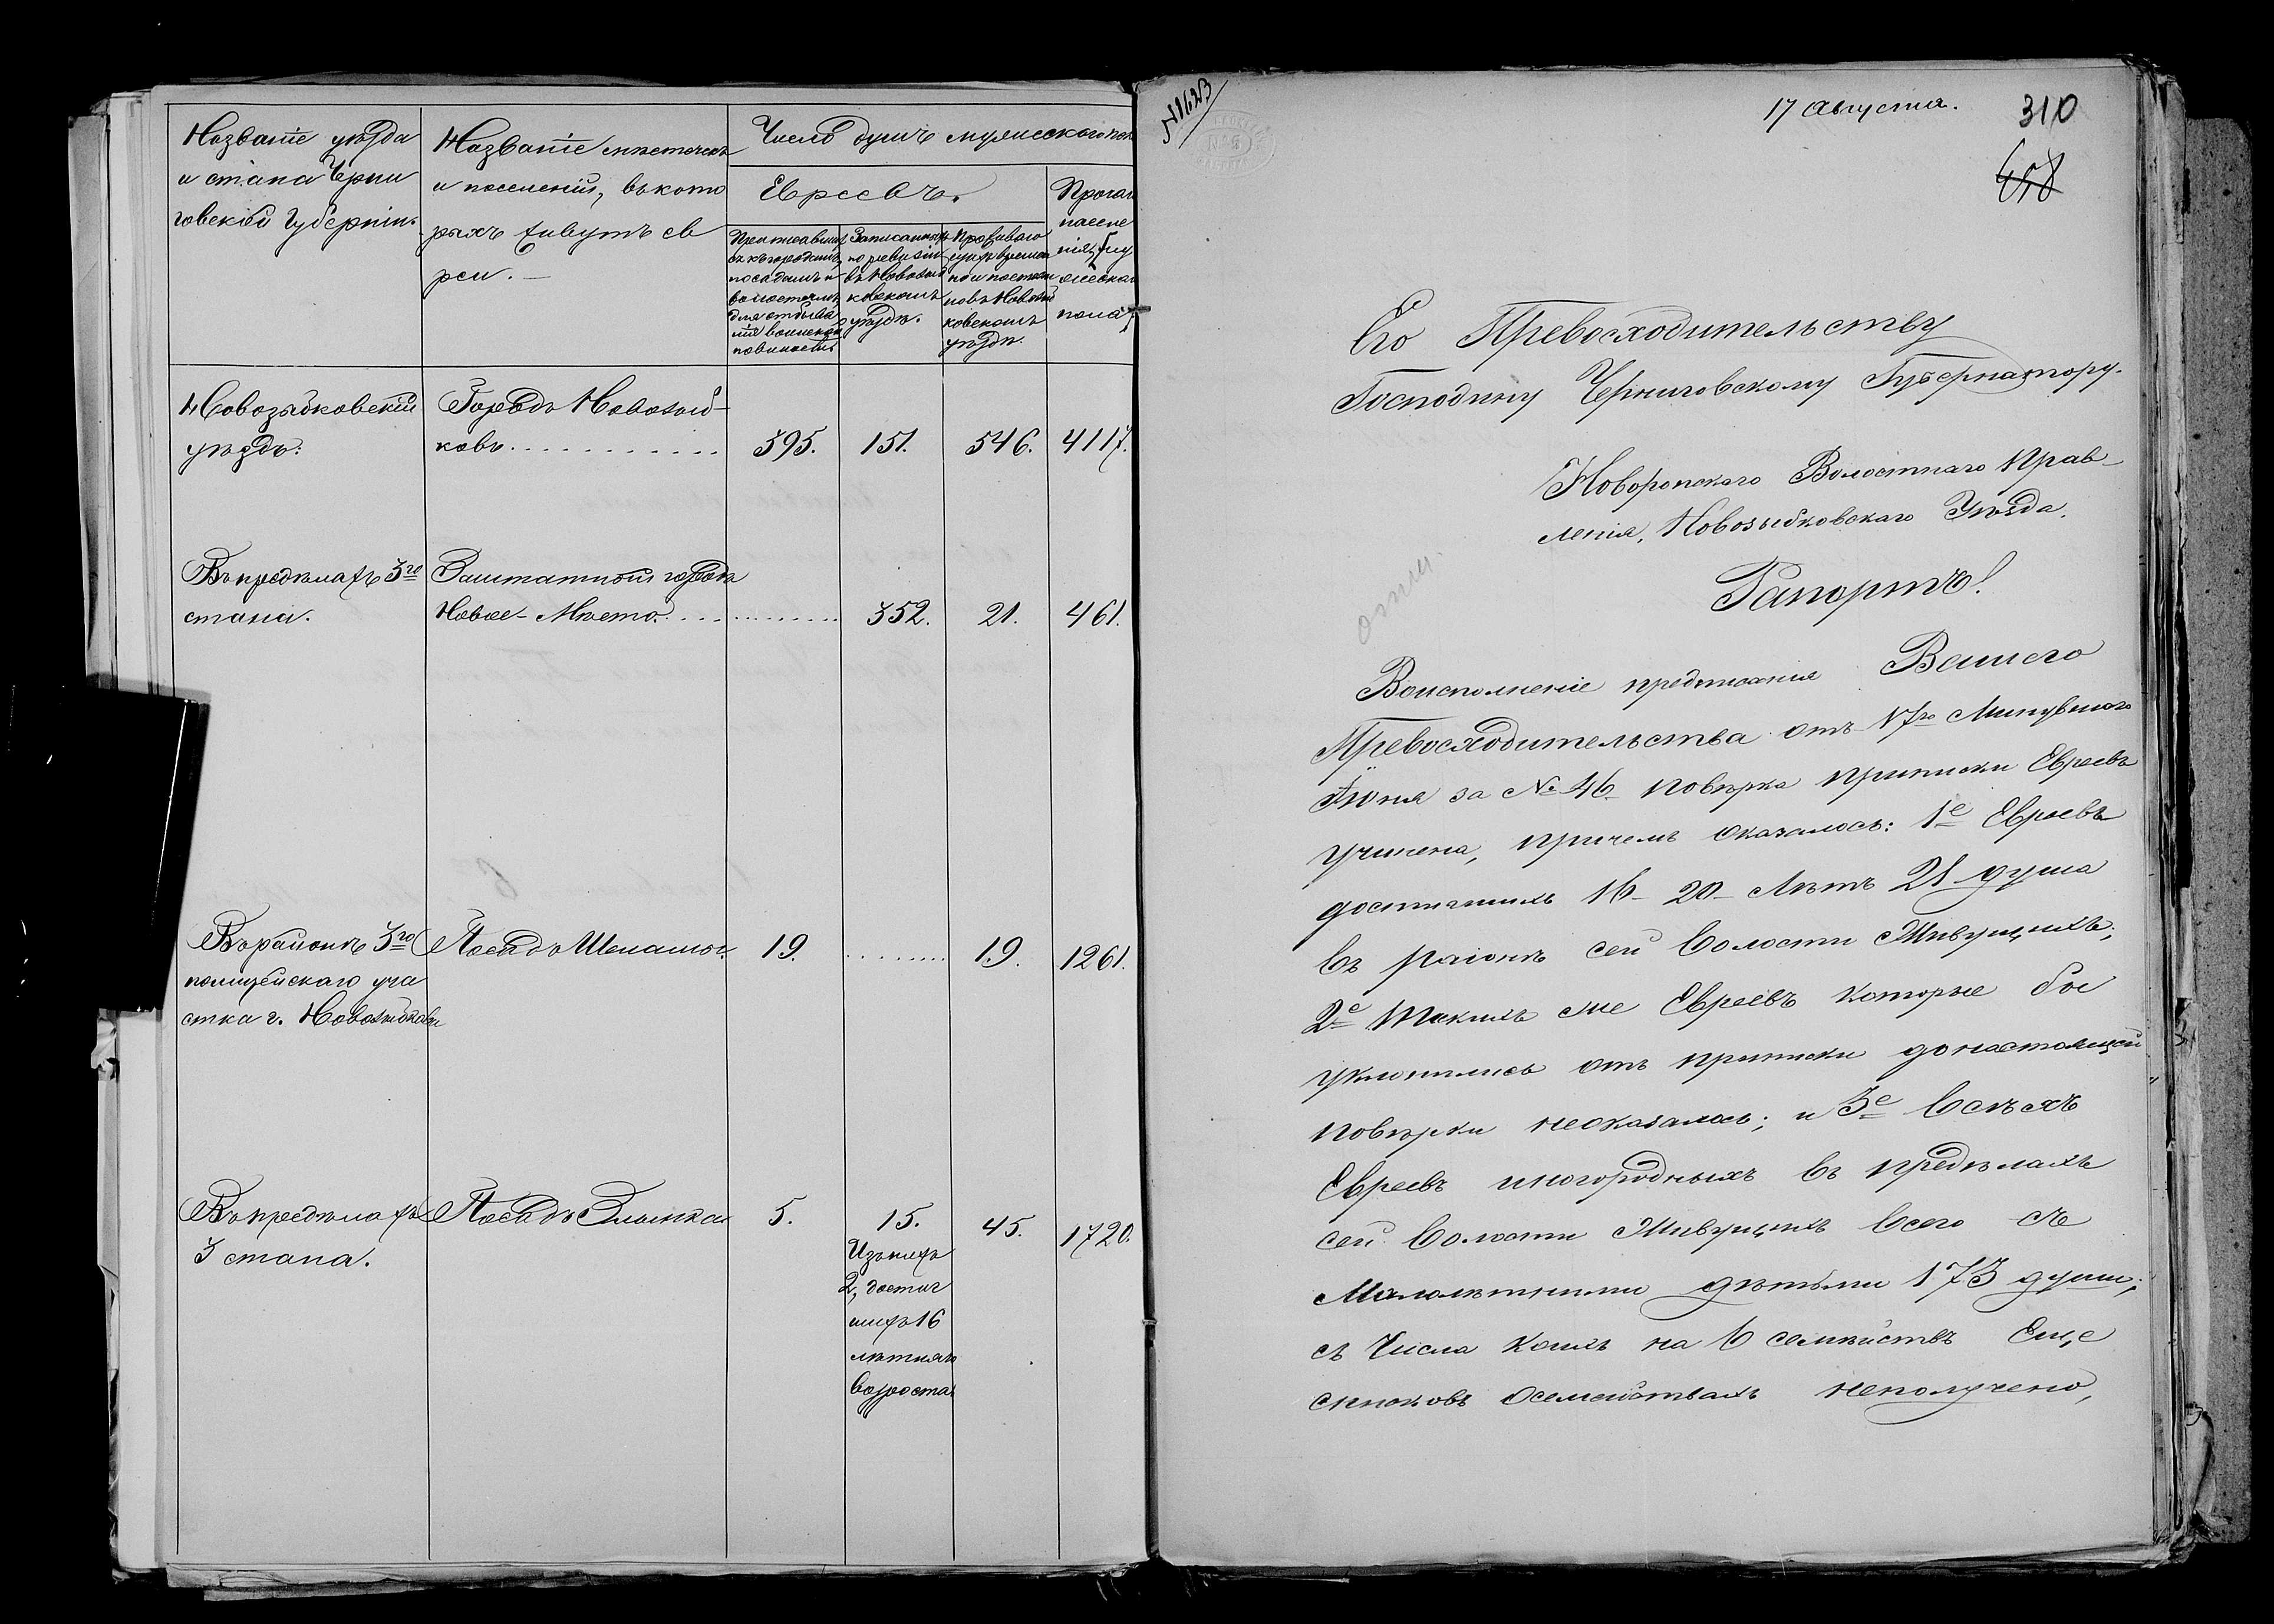 Названіе уѣзда
и стана Черни
говской Губерніи.
Названіе мѣстечекъ
и поселеній, въ кото
рыхъ живутъ ев
реи. —
Число душъ мужескаго пол
Евреевъ.
Приписавших
ся къ городамъ,
посадамъ и
волостямъ
для отбыва
нія воинской
повинности
Записанныхъ
по ревизіи
въ Новозыб
ковскомъ
уѣздѣ.
Проживаю
щихъ времен
но и постоян
но въ Новозыб
ковскомъ
уѣздѣ.
Прочаго
населе
нія, му
жескаго
пола,
Новозыбковскій
уѣздъ:
Городъ Новозыб-
ковъ............
395. 151. 546. 4117.
Въ предѣлахъ 3го
стана.
Заштатный городъ
Новое-Мѣсто............
352. 21. 461.
Въ районѣ 3го
полицейскаго уча
стка г. Новозыбкова
Посадъ Шеломы.
19. ......... 19. 1261.
Въ предѣлахъ
3 стана.
Посадъ Злынка
5. 15. 45. 1720.
Изъ нихъ
2, достиг
шихъ 16
лѣтняго
возроста
№1623
17 Августа. 310
Его Превосходительству
Господину Черниговскому Губернатору.
Новоропскаго Волостнаго Прав-
ленія, Новозыбковскаго Уѣзда.
Рапортъ!
Воисполненіе предписанія Вашего
Превосходительства отъ 17го Минувшаго
Іюня за № 46 повѣрка приписки Евреевъ
учинена, причемъ оказалось: 1е Евреевъ
достигшихъ 16-20-Лѣтъ 21 душа
въ раіонѣ сей Волости Живущихъ;
2е Такихъ же Евреевъ которые бы
уклонились отъ приписки донастоящей
повѣрки неоказалось; и 3е Всѣхъ
Евреевъ иногородныхъ въ предѣлахъ
сей Волости Живущихъ Всего съ
Малолѣтними дѣтьми 173 души;
съ Числа коихъ на 6 семѣйствъ Еще
списковъ осемействахъ неполучено,